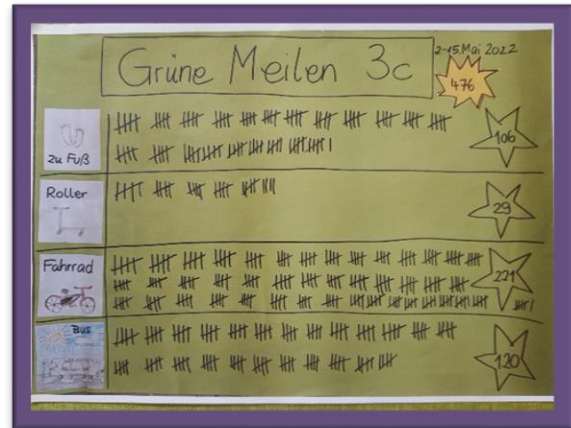 Grüne Meilen 3c
2-15.Mai 2022
476
zu Fuß
106
Roller
29
Fahrrad
221
Bus
120